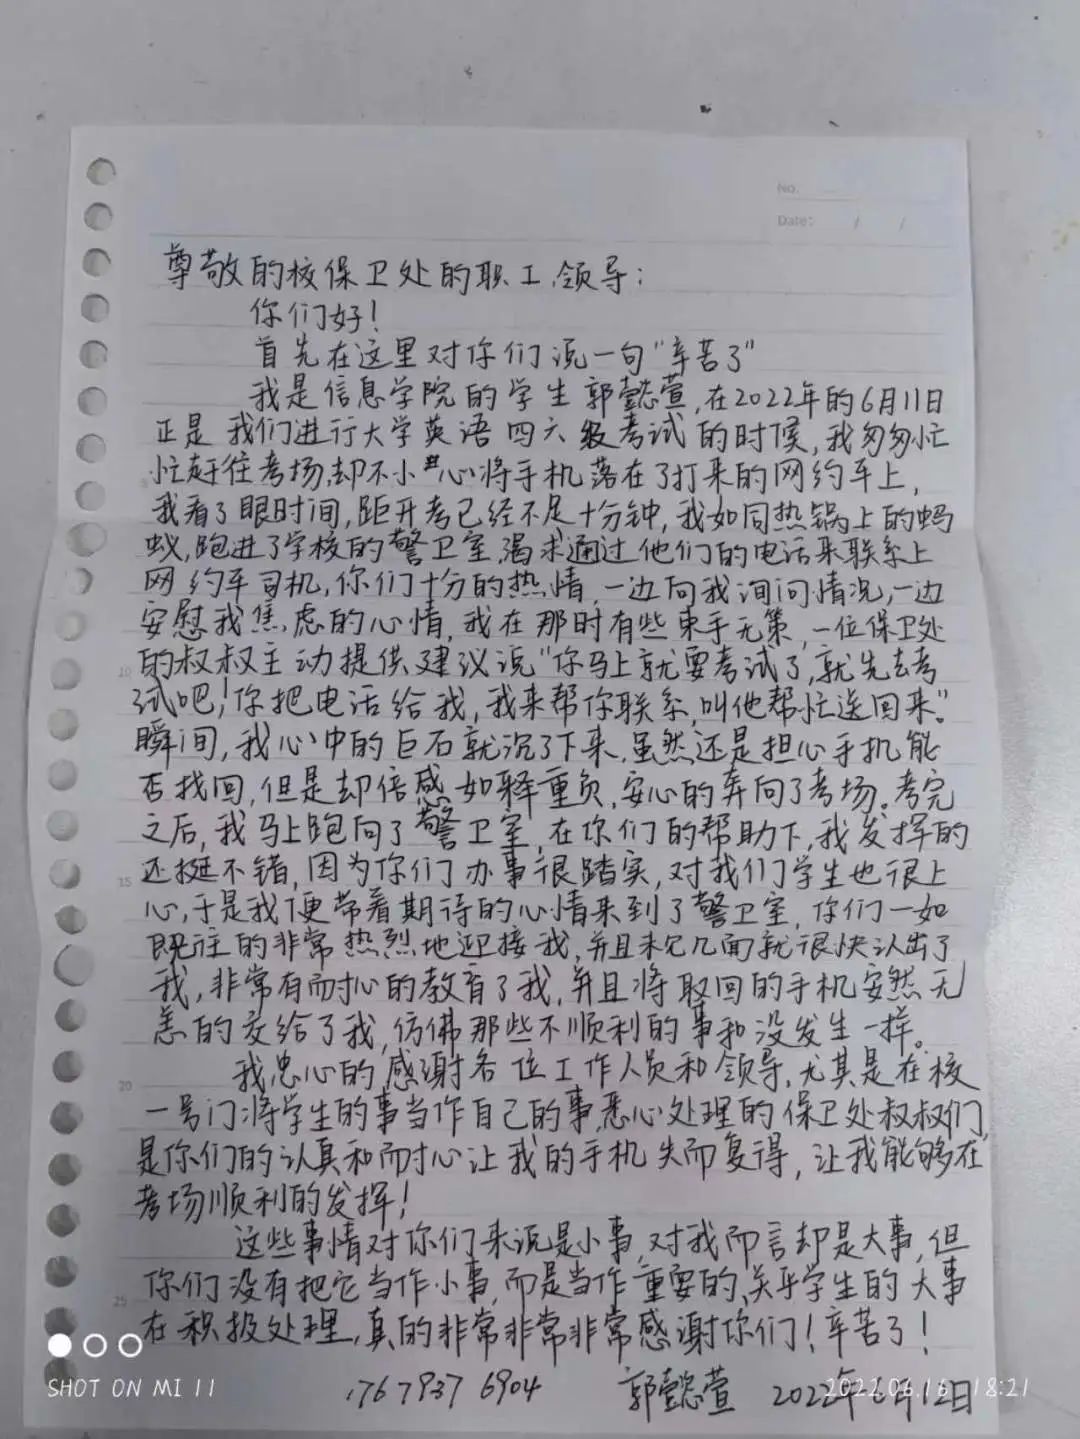 No.
Date: / /
尊敬的校保卫处的职工、领导：
你们好！
首先在这里对你们说一句"辛苦了"
我是信息学院的学生郭懿萱，在2022年的6月11日
正是我们进行大学英语四六级考试的时候，我匆匆忙
忙赶往考场，却不小心将手机落在了打来的网约车上，
我看了眼时间，距开考已经不足十分钟，我如同热锅上的蚂
蚁，跑进了学校的警卫室，渴求通过他们的电话来联系上
网约车司机，你们十分的热情，一边向我询问情况，一边
安慰我焦虑的心情，我在那时有些束手无策，一位保卫处
的叔叔主动提供建议说"你马上就要考试了，就先去考
试吧！你把电话给我，我来帮你联系，叫他帮忙送回来。"
瞬间，我心中的巨石就沉了下来，虽然还是担心手机能
否找回，但是却倍感如释重负，安心的奔向了考场。考完
之后，我马上跑向了警卫室，在你们的帮助下，我发挥的
还挺不错，因为你们办事很踏实，对我们学生也很上
心，于是我便带着期待的心情来到了警卫室，你们一如
既往的非常热烈地迎接我，并且未见几面就很快认出了
我，非常有耐心的教育了我，并且将取回的手机安然无
恙的交给了我，仿佛那些不顺利的事和没发生一样。
我忠心的感谢各位工作人员和领导，尤其是在校
一号门将学生的事当作自己的事，悉心处理的保卫处叔叔们，
是你们的认真和耐心让我的手机失而复得，让我能够在
考场顺利的发挥！
这些事情对你们来说是小事，对我而言却是大事，但
你们没有把它当作小事，而是当作重要的、关乎学生的大事
在积极处理，真的非常非常非常感谢你们！辛苦了！
17679376904 郭懿萱 2022年6月12日
SHOT ON MI 11
2022.06.16 18:21
10
15
20
25